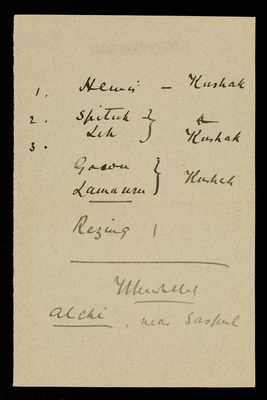 1. Hemis - Kushak
2. Spituk }
3. Leh } Kushak
Lamauru } Kushak
Rezing 1
Alchi, near Saspul